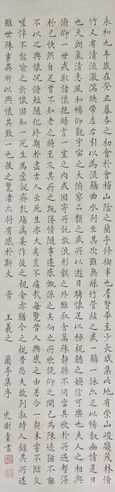 永和九年歲在癸丑暮春之初會于會稽山陰之蘭亭脩禊事也群賢畢至少長咸集此地有崇山峻領茂林脩
竹又有清流激湍映帶左右引以為流觴曲水列坐其次雖無絲竹管弦之盛一觴一詠亦足以暢敘幽情是日
也天朗氣清惠風和暢仰觀宇宙之大俯察品類之盛所以遊目騁懷足以極視聽之娛信可樂也夫人之相與
俯仰一世或取諸懷抱晤言一室之內或因寄所託放浪形骸之外雖取舍萬殊靜躁不同當其欣於所遇暫得
於己快然自足不知老之將至及其所之既倦情隨事遷感慨係之矣向之所欣俛仰之間已為陳迹猶不能不
以之興懷況脩短隨化終期於盡古人云死生亦大矣豈不痛哉每覽昔人興感之由若合一契未嘗不臨文
嗟悼不能喻之於懷固知一死生為虛誕齊彭殤為妄作後之視今亦猶今之視昔悲夫故列敘時人錄其所述
雖世殊事異所以興懷其致一也後之覽者亦將有感於斯文 晉 王羲之 蘭亭集序 史樹青書